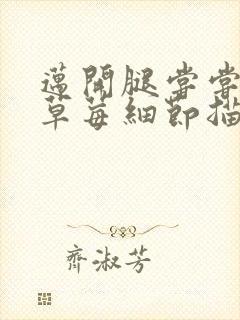 邁開腿嘗嘗
草莓細節描
齊淑芳